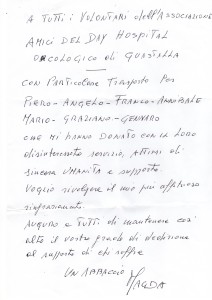 A TUTTI I VOLONTARI dell'ASSOCIAZIONE
AMICI DEL DAY HOSPITAL
ONCOLOGICO di GUASTALLA
CON PARTICOLARE TRASPORTO PER
PIERO - ANGELO - FRANCO - ANNIBALE
MARIO - GRAZIANO - GENNARO
CHE MI HANNO DONATO CON IL LORO
disinteressato servizio, ATTIMI di
sincera UMANITÀ e supporto.
Voglio rivolgere il mio più affettuoso
ringraziamento.
AUGURO a TUTTI di mantenere così
alto il vostro grado di dedizione
al supporto di chi soffre
UN ABBRACCIO
MAGDA